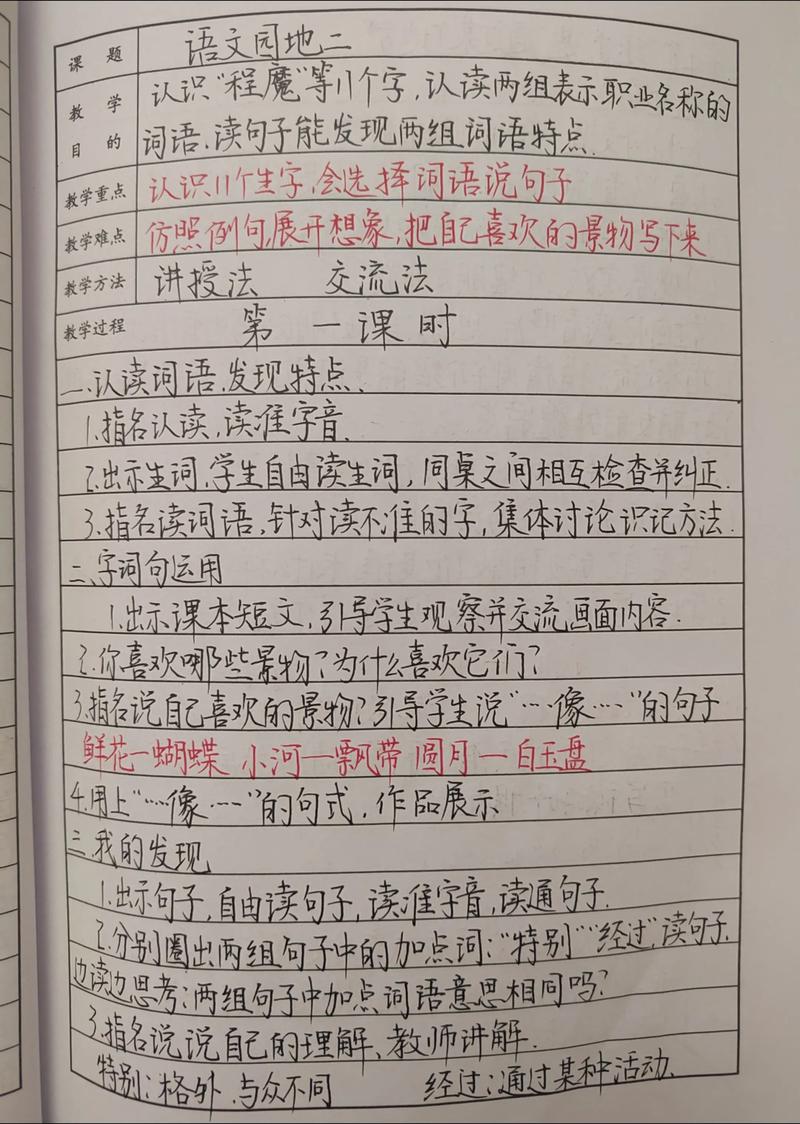 课 题 语文园地二
教 学 目 的 认识“程魔”等11个字，认读两组表示职业名称的
词语、读句子能发现两组词语特点.
教学重点 认识11个生字，会选择词语说句子
教学难点 仿照例句，展开想象，把自己喜欢的景物写下来
教学方法 讲授法 交流法
教学过程 第一课时
一、认读词语，发现特点.
1.指名认读，读准字音.
2.出示生词，学生自由读生词，同桌之间相互检查并纠正.
3.指名读词语，针对读不准的字，集体讨论识记方法.
二、字词句运用
1.出示课本短文，引导学生观察并交流画面内容.
2.你喜欢哪些景物？为什么喜欢它们？
3.指名说自己喜欢的景物？引导学生说“……像……”的句子
鲜花—蝴蝶 小河—飘带 圆月—白玉盘
4.用上“……像……”的句式，作品展示
三、我的发现
1.出示句子，自由读句子，读准字音，读通句子.
2.分别圈出两组句子中的加点词：“特别”“经过”，读句子，
边读边思考：两组句子中加点词语意思相同吗？
3.指名说说自己的理解、教师讲解.
特别：格外、与众不同 经过：通过某种活动.